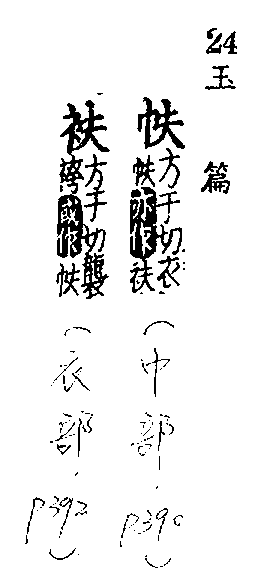 24 玉篇
方于切衣
亦作衭
(巾部·P390)
衭
方于切襲
袴或作
(衣部·P392)